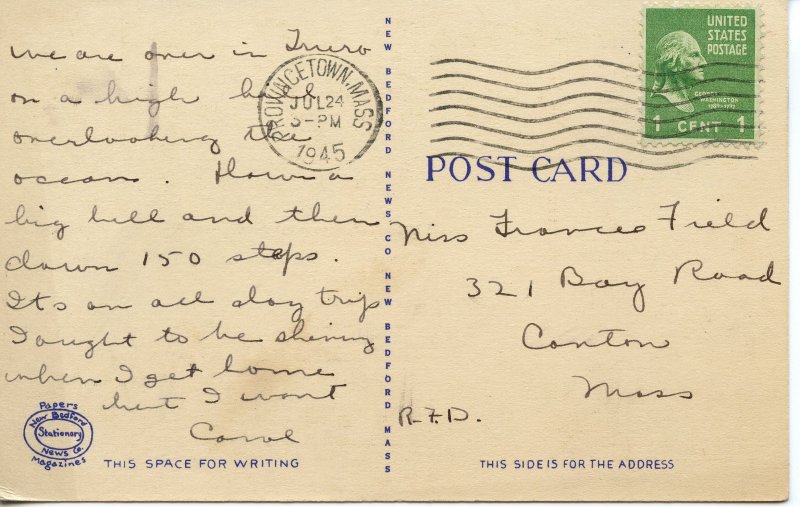 We are over in Truro
on a high bluff
overlooking the
ocean. Down a
big hill and then
down 150 steps.
Its an all day trip
I ought to be shining
when I get home
but I wont
Carol
Papers
New Bedford
Stationery
News Co.
Magazines
THIS SPACE FOR WRITING
NEW BEDFORD NEWS CO NEW BEDFORD MASS
PROVINCETOWN, MASS
JUL 24
5-PM
1945
UNITED
STATES
POSTAGE
GEORGE
WASHINGTON
1789-1797
1 CENT 1
POST CARD
Miss Frances Field
321 Bay Road
Canton
Mass
R.F.D.
THIS SIDE IS FOR THE ADDRESS